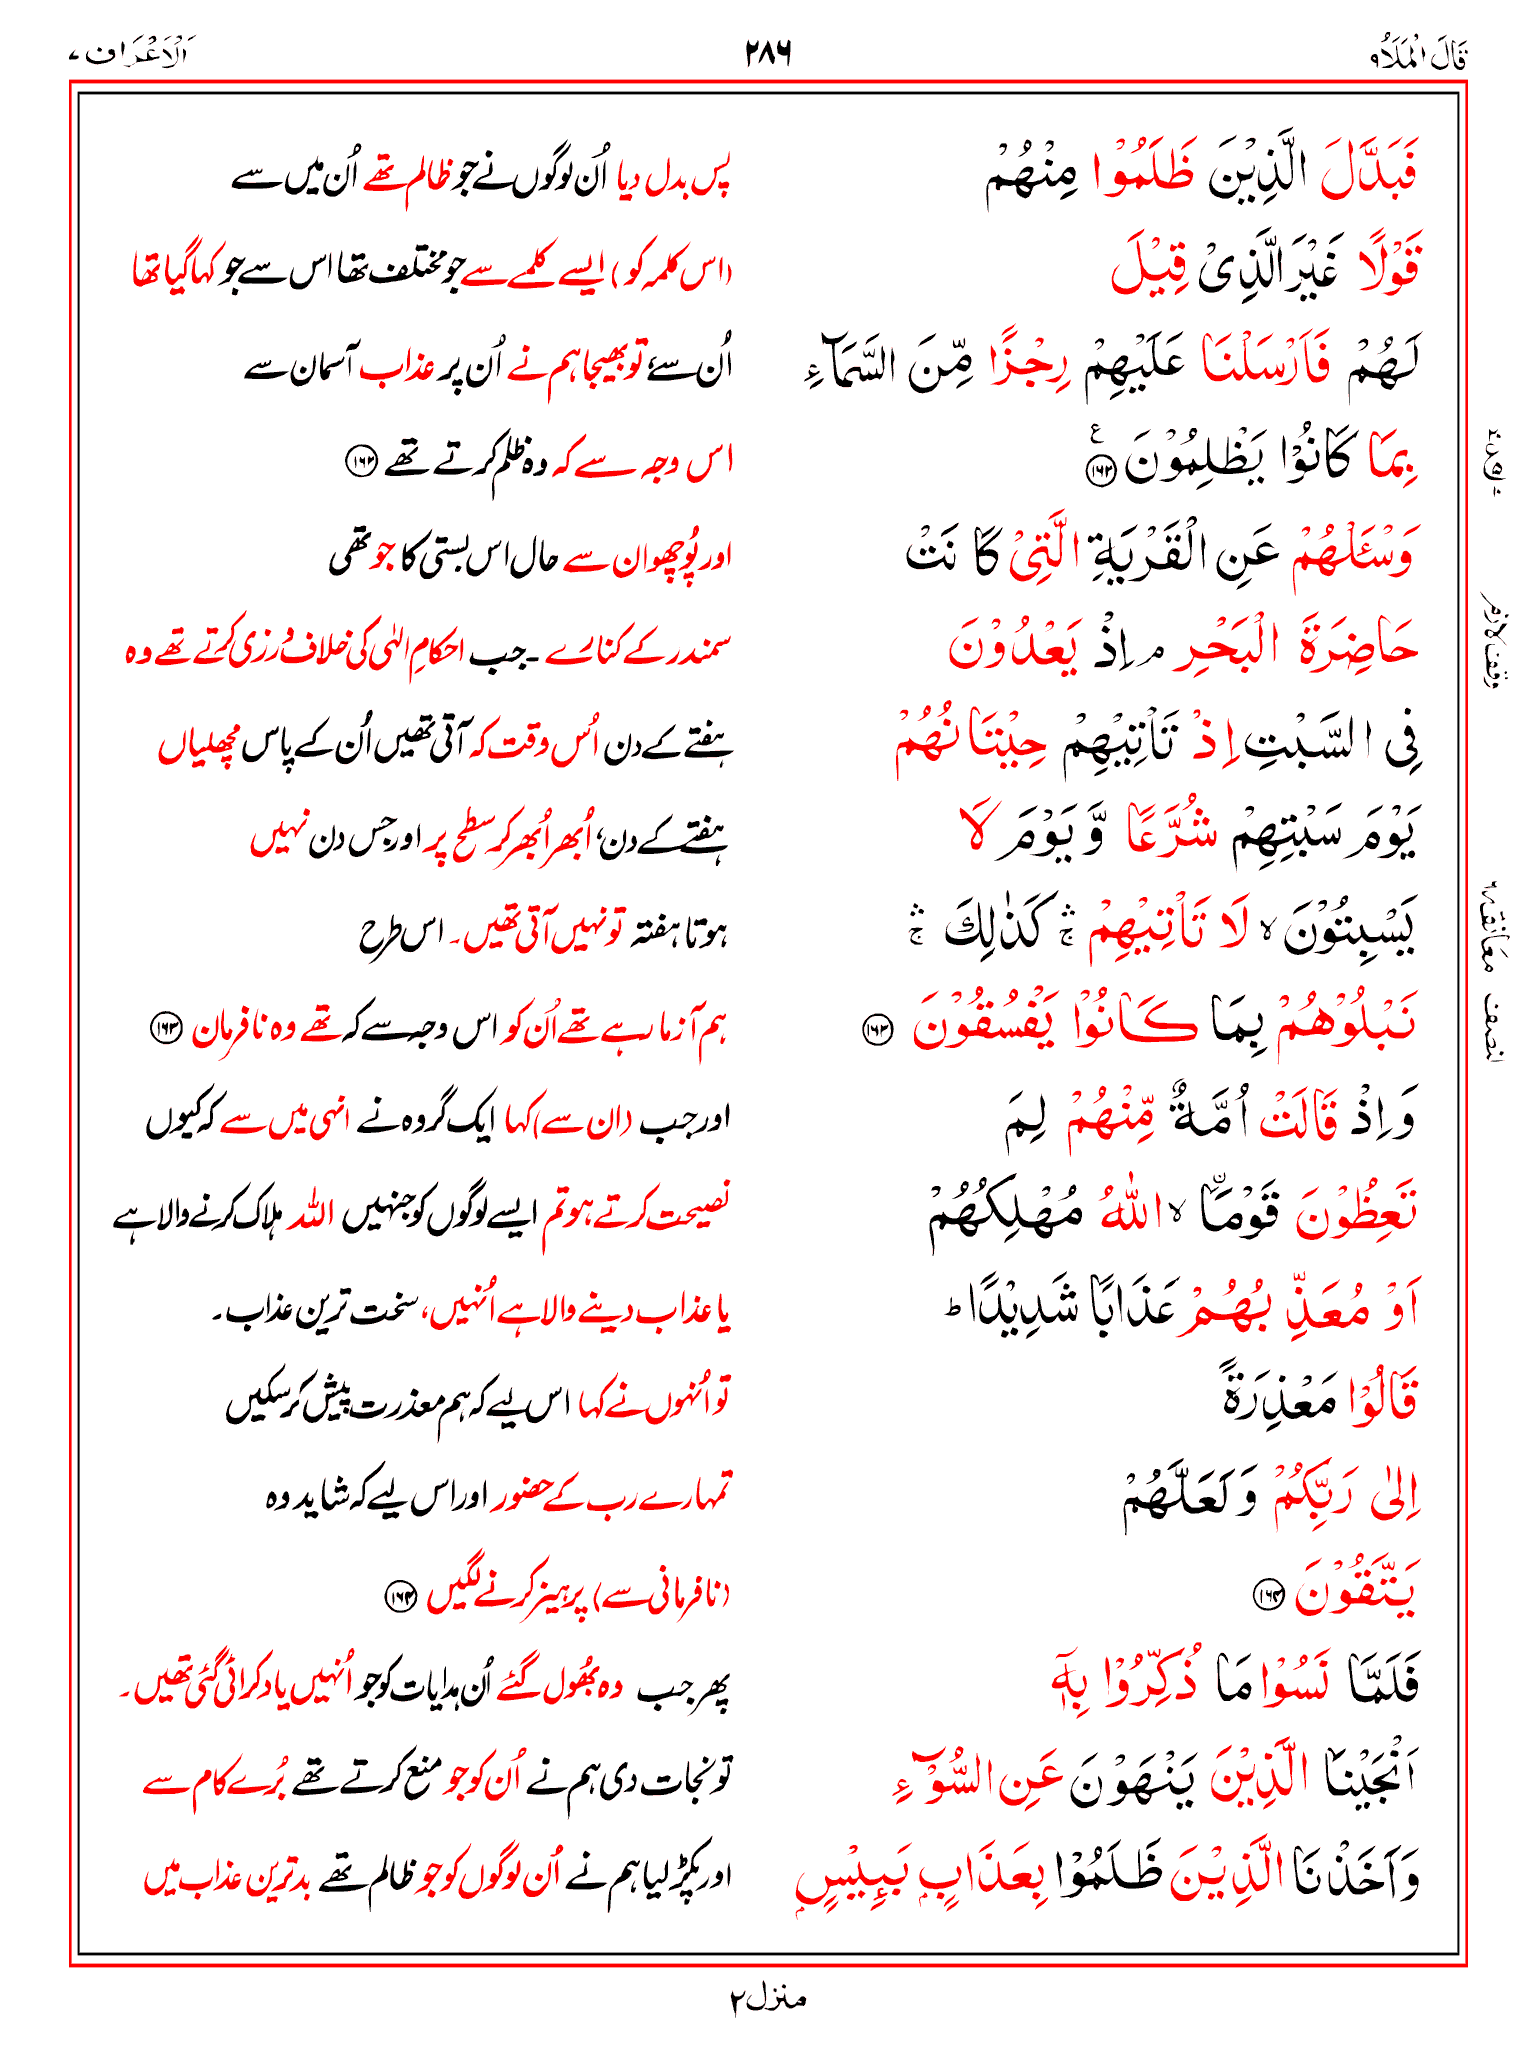 قَالَ الْمَلَاُ ۹
۲۸۶
اَلْاَعْرَاف ۷
فَبَدَّلَ الَّذِيْنَ ظَلَمُوْا مِنْهُمْ
پس بدل دیا اُن لوگوں نے جو ظالم تھے اُن میں سے
قَوْلًا غَيْرَ الَّذِىْ قِيْلَ
(اس کلمہ کو) ایسے کلمے سے جو مختلف تھا اس سے جو کہا گیا تھا
لَهُمْ فَاَرْسَلْنَا عَلَيْهِمْ رِجْزًا مِّنَ السَّمَآءِ
اُن سے، تو بھیجا ہم نے اُن پر عذاب آسمان سے
بِمَا كَانُوْا يَظْلِمُوْنَ ۱۶۲ ع
اس وجہ سے کہ وہ ظلم کرتے تھے ۱۶۲
وَسْـَٔلْهُمْ عَنِ الْقَرْيَةِ الَّتِىْ كَانَتْ
اور پُوچھو ان سے حال اس بستی کا جو تھی
حَاضِرَةَ الْبَحْرِ ۘ اِذْ يَعْدُوْنَ
سمندر کے کنارے ۔ جب احکامِ الٰہی کی خلاف ورزی کرتے تھے وہ
فِى السَّبْتِ اِذْ تَاْتِيْهِمْ حِيْتَانُهُمْ
ہفتے کے دن اُس وقت کہ آتی تھیں اُن کے پاس مچھلیاں
يَوْمَ سَبْتِهِمْ شُرَّعًا وَّ يَوْمَ لَا
ہفتے کے دن، اُبھر اُبھر کر سطح پر اور جس دن نہیں
يَسْبِتُوْنَ ۙ لَا تَاْتِيْهِمْ ۛۚ كَذٰلِكَ ۛۚ
ہوتا ہفتہ تو نہیں آتی تھیں۔ اس طرح
نَبْلُوْهُمْ بِمَا كَانُوْا يَفْسُقُوْنَ ۱۶۳
ہم آزما رہے تھے اُن کو اس وجہ سے کہ تھے وہ نافرمان ۱۶۳
وَاِذْ قَالَتْ اُمَّةٌ مِّنْهُمْ لِمَ
اور جب (ان سے) کہا ایک گروہ نے انہی میں سے کہ کیوں
تَعِظُوْنَ قَوْمَاۨ ۙ اللّٰهُ مُهْلِكُهُمْ
نصیحت کرتے ہو تم ایسے لوگوں کو جنہیں اللہ ہلاک کرنے والا ہے
اَوْ مُعَذِّبُهُمْ عَذَابًا شَدِيْدًا ؕ
یا عذاب دینے والا ہے اُنہیں، سخت ترین عذاب۔
قَالُوْا مَعْذِرَةً
تو اُنہوں نے کہا اس لیے کہ ہم معذرت پیش کرسکیں
اِلٰى رَبِّكُمْ وَلَعَلَّهُمْ
تمہارے رب کے حضور اور اس لیے کہ شاید وہ
يَتَّقُوْنَ ۱۶۴
(نافرمانی سے) پرہیز کرنے لگیں ۱۶۴
فَلَمَّا نَسُوْا مَا ذُكِّرُوْا بِهٖۤ
پھر جب وہ بھُول گئے اُن ہدایات کو جو اُنہیں یاد کرائی گئی تھیں۔
اَنْجَيْنَا الَّذِيْنَ يَنْهَوْنَ عَنِ السُّوْٓءِ
تو نجات دی ہم نے اُن کو جو منع کرتے تھے بُرے کام سے
وَاَخَذْنَا الَّذِيْنَ ظَلَمُوْا بِعَذَابٍۭ بَـِٔيْسٍۭ
اور پکڑ لیا ہم نے اُن لوگوں کو جو ظالم تھے بدترین عذاب میں
وقف لازم
معانقہ ۶
نصف
منزل ۲